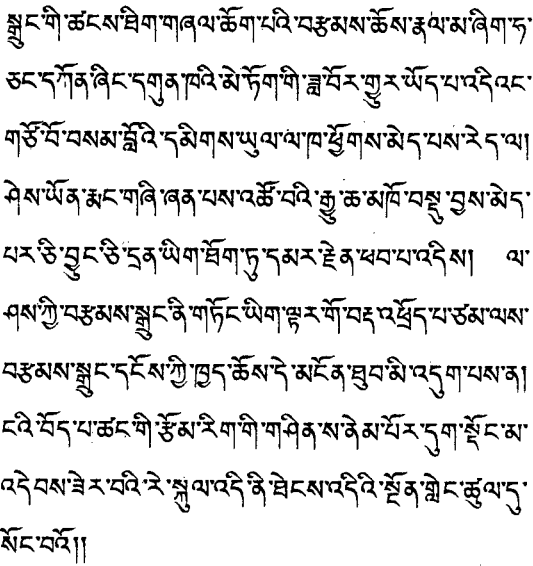 སྒྲུང་གི་ཚངས་ཐིག་གཞལ་ཆོག་པའི་བརྩམས་ཆོས་རྣལ་མ་ཞིག་ཧ་
ཅང་དཀོན་ཞིང་དགུན་ཁའི་མེ་ཏོག་གི་ཟླ་བོར་གྱུར་ཡོད་པ་འདིའང་
གཙོ་བོ་བསམ་བློའི་དམིགས་ཡུལ་ལ་ཁ་ཕྱོགས་མེད་པས་རེད་ལ།
ཤེས་ཡོན་རྨང་གཞི་ཞན་པས་འཚོ་བའི་རྒྱུ་ཆ་མཁོ་བསྡུ་བྱས་མེད་
པར་ཅི་བྱུང་ཅི་དྲན་ཡིག་ཐོག་ཏུ་དམར་རྗེན་ཕབ་པ་འདིས། ལ་
ཤས་ཀྱི་བརྩམས་སྒྲུང་ནི་གཏོང་ཡིག་ལྟར་གོ་བརྡ་འཕྲོད་པ་ཙམ་ལས་
བརྩམས་སྒྲུང་དངོས་ཀྱི་ཁྱད་ཆོས་དེ་མངོན་ཐུབ་མི་འདུག་པས་ན།
ངའི་བོད་པ་ཚང་གི་རྩོམ་རིག་གི་གཤིན་ས་ནེམ་པོར་དུག་སྡོང་མ་
འདེབས་ཟེར་བའི་རེ་སྐུལ་འདི་ནི་ཐེངས་འདིའི་སྔོན་གླེང་ཚུལ་དུ་
སོང་བའོ།།